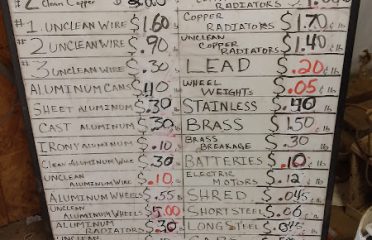 #2 Clean Copper $
#1 UNCLEAN WIRE $1.60
#2 UNCLEAN WIRE $.90
#3 UNCLEAN WIRE $.30
ALUMINUM CANS $.40
SHEET ALUMINUM $.30
CAST ALUMINUM $.30
IRONY ALUMINUM $.10
Clean ALUMINUM WIRE $.30
UNCLEAN ALUMINUM WIRE $.10
ALUMINUM WHEELS $.55
UNCLEAN ALUMINUM WHEELS $5.00
ALUMINUM RADIATORS $.30
RADIATORS $
COPPER RADIATORS $1.70 ¢ lb
UNCLEAN COPPER RADIATORS $1.40 ¢ lb
LEAD $.20 ¢ lb
WHEEL WEIGHTS $.05 ¢ lb
STAINLESS $.40 ¢ lb
BRASS $1.50 ¢ lb
BRASS BREAKAGE $.30 ¢ lb
BATTERIES $.10 ¢ lb
ELECTRIC MOTORS $.12 ¢ lb
SHRED $.04 ¢ lb
SHORT STEEL $.06 ¢ lb
LONG STEEL $.04 ¢ lb